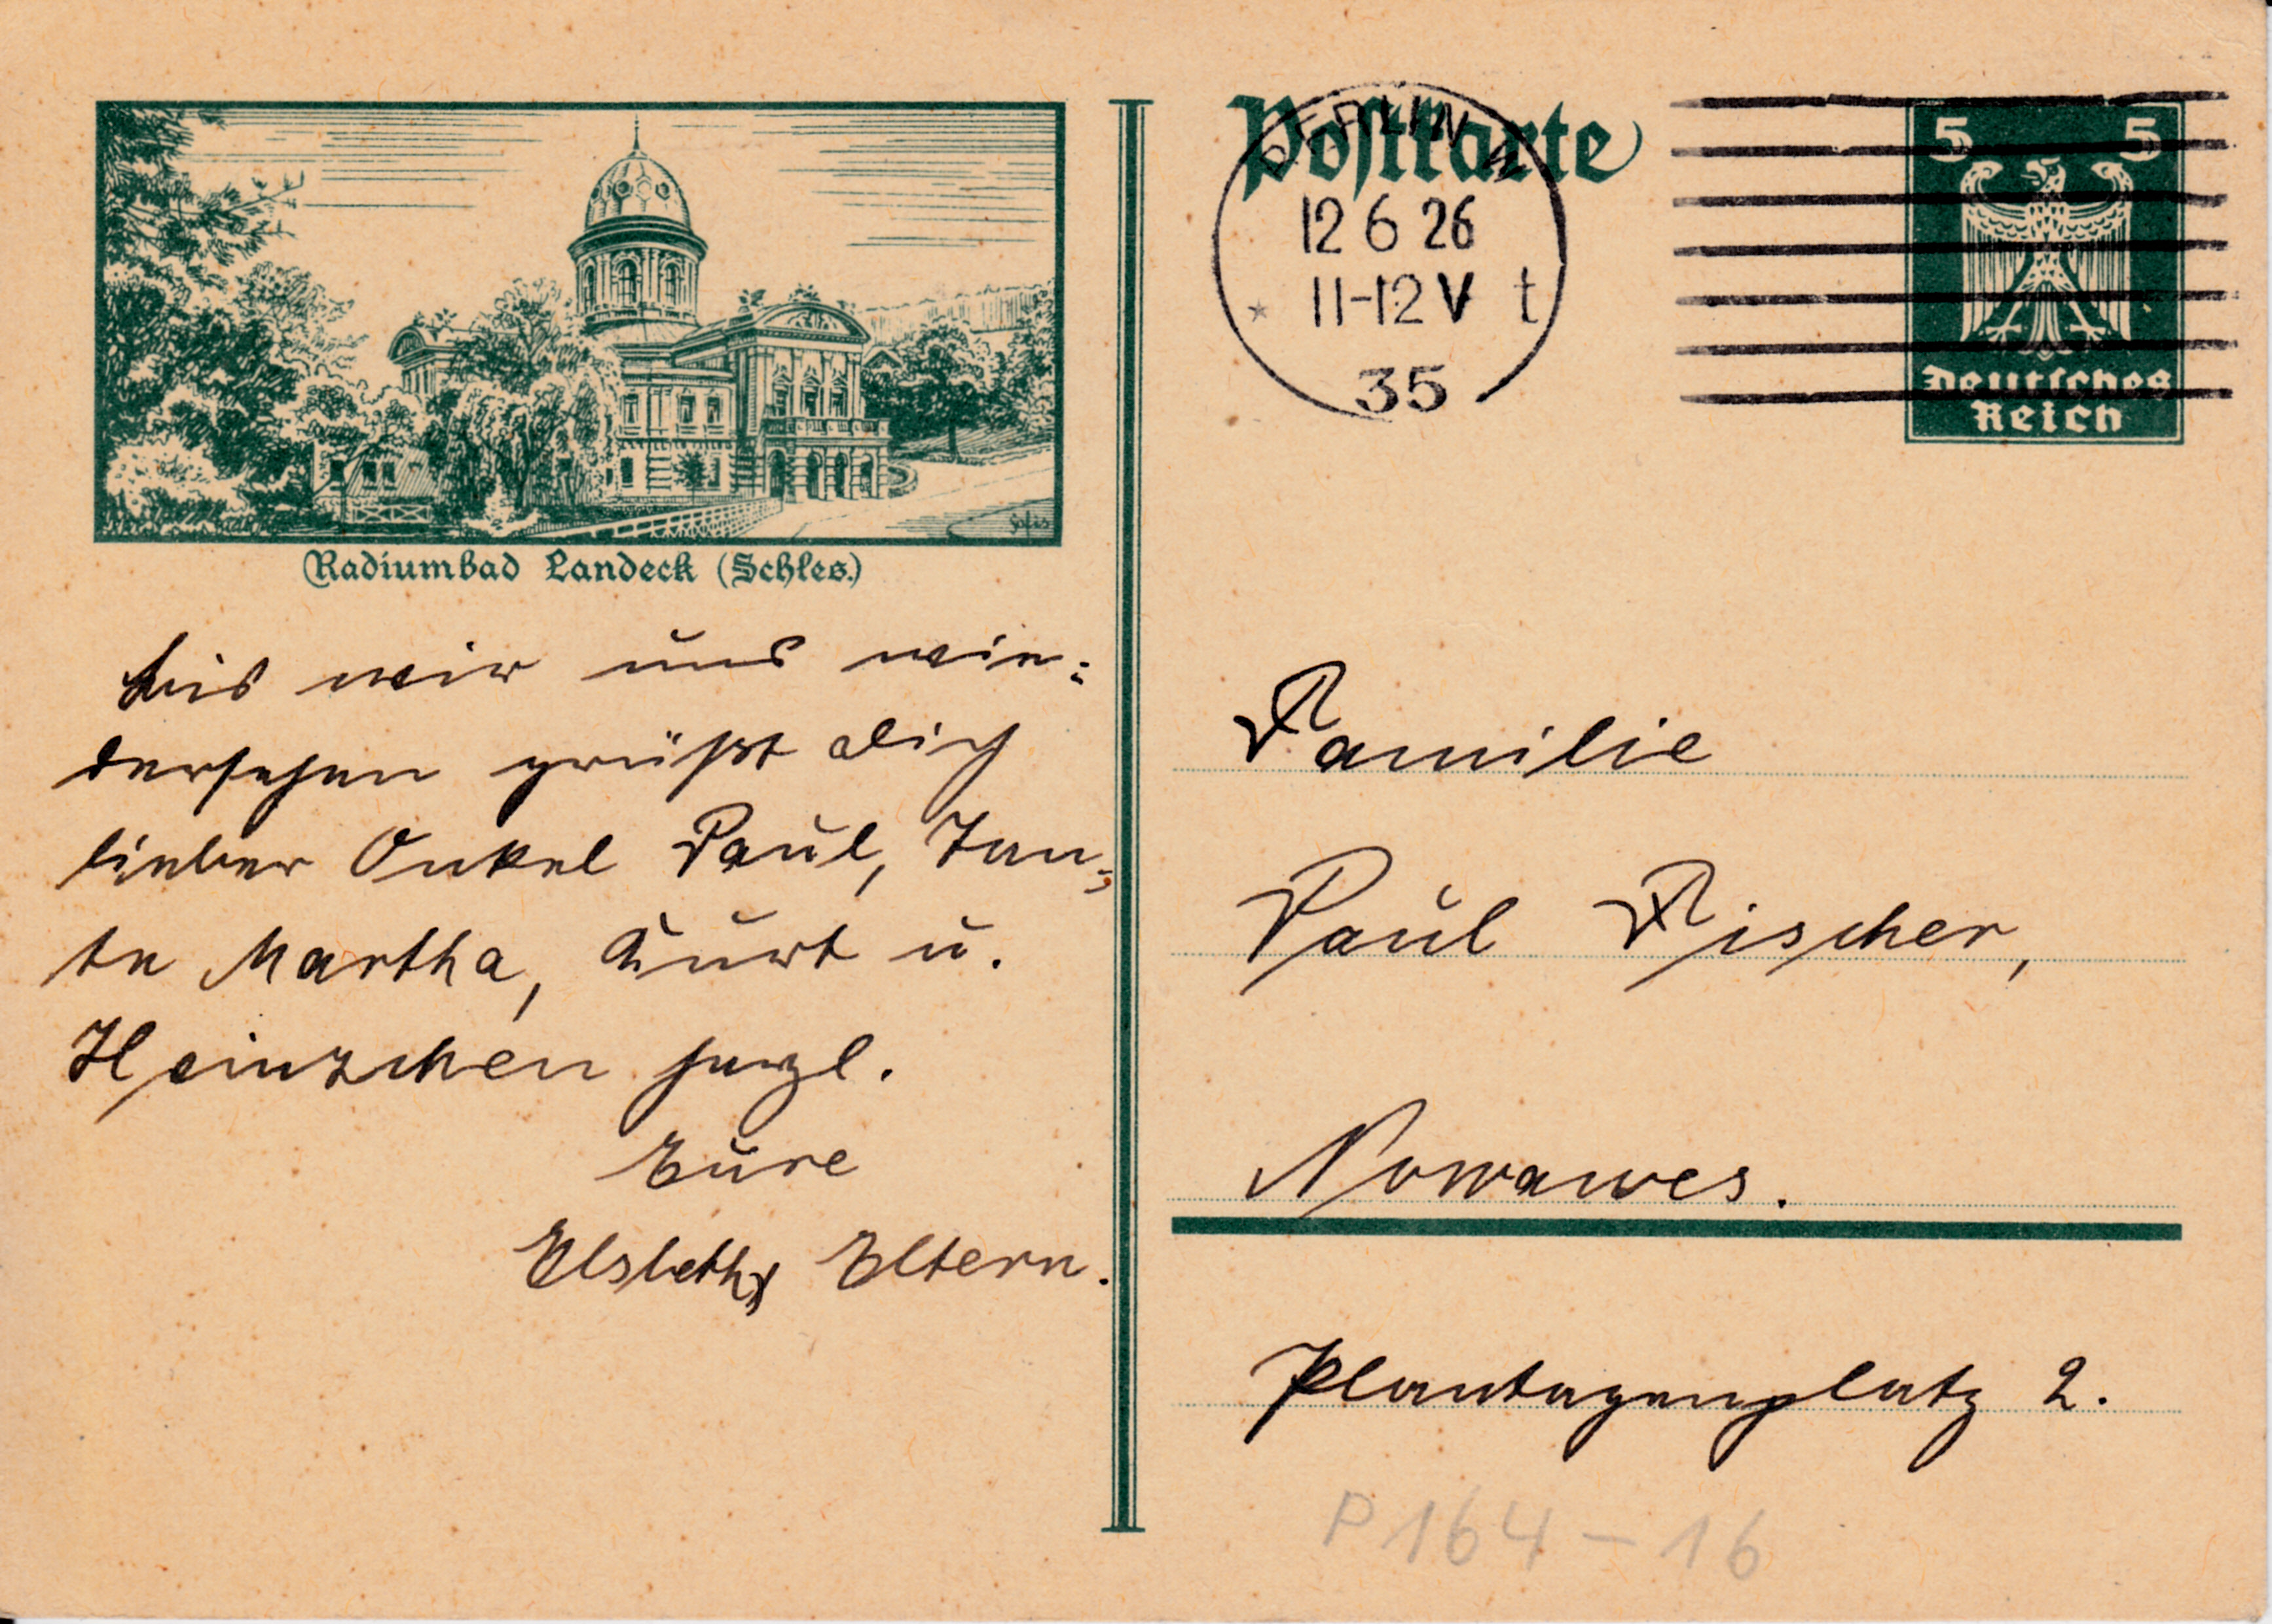 Radiumbad Landeck (Schles.)
bis wir uns wie-
dersehen grüßt dich
lieber Onkel Paul, Tan-
te Martha, Kurt u.
Heinzchen herzl.
Eure
Elsbeth, Eltern.
Postkarte
BERLIN W
12 6 26
11-12 V t
* 35
5 5
Deutsches
Reich
Familie
Paul Fischer,
Nowawes.
Plantagenplatz 2.
P 164 - 16